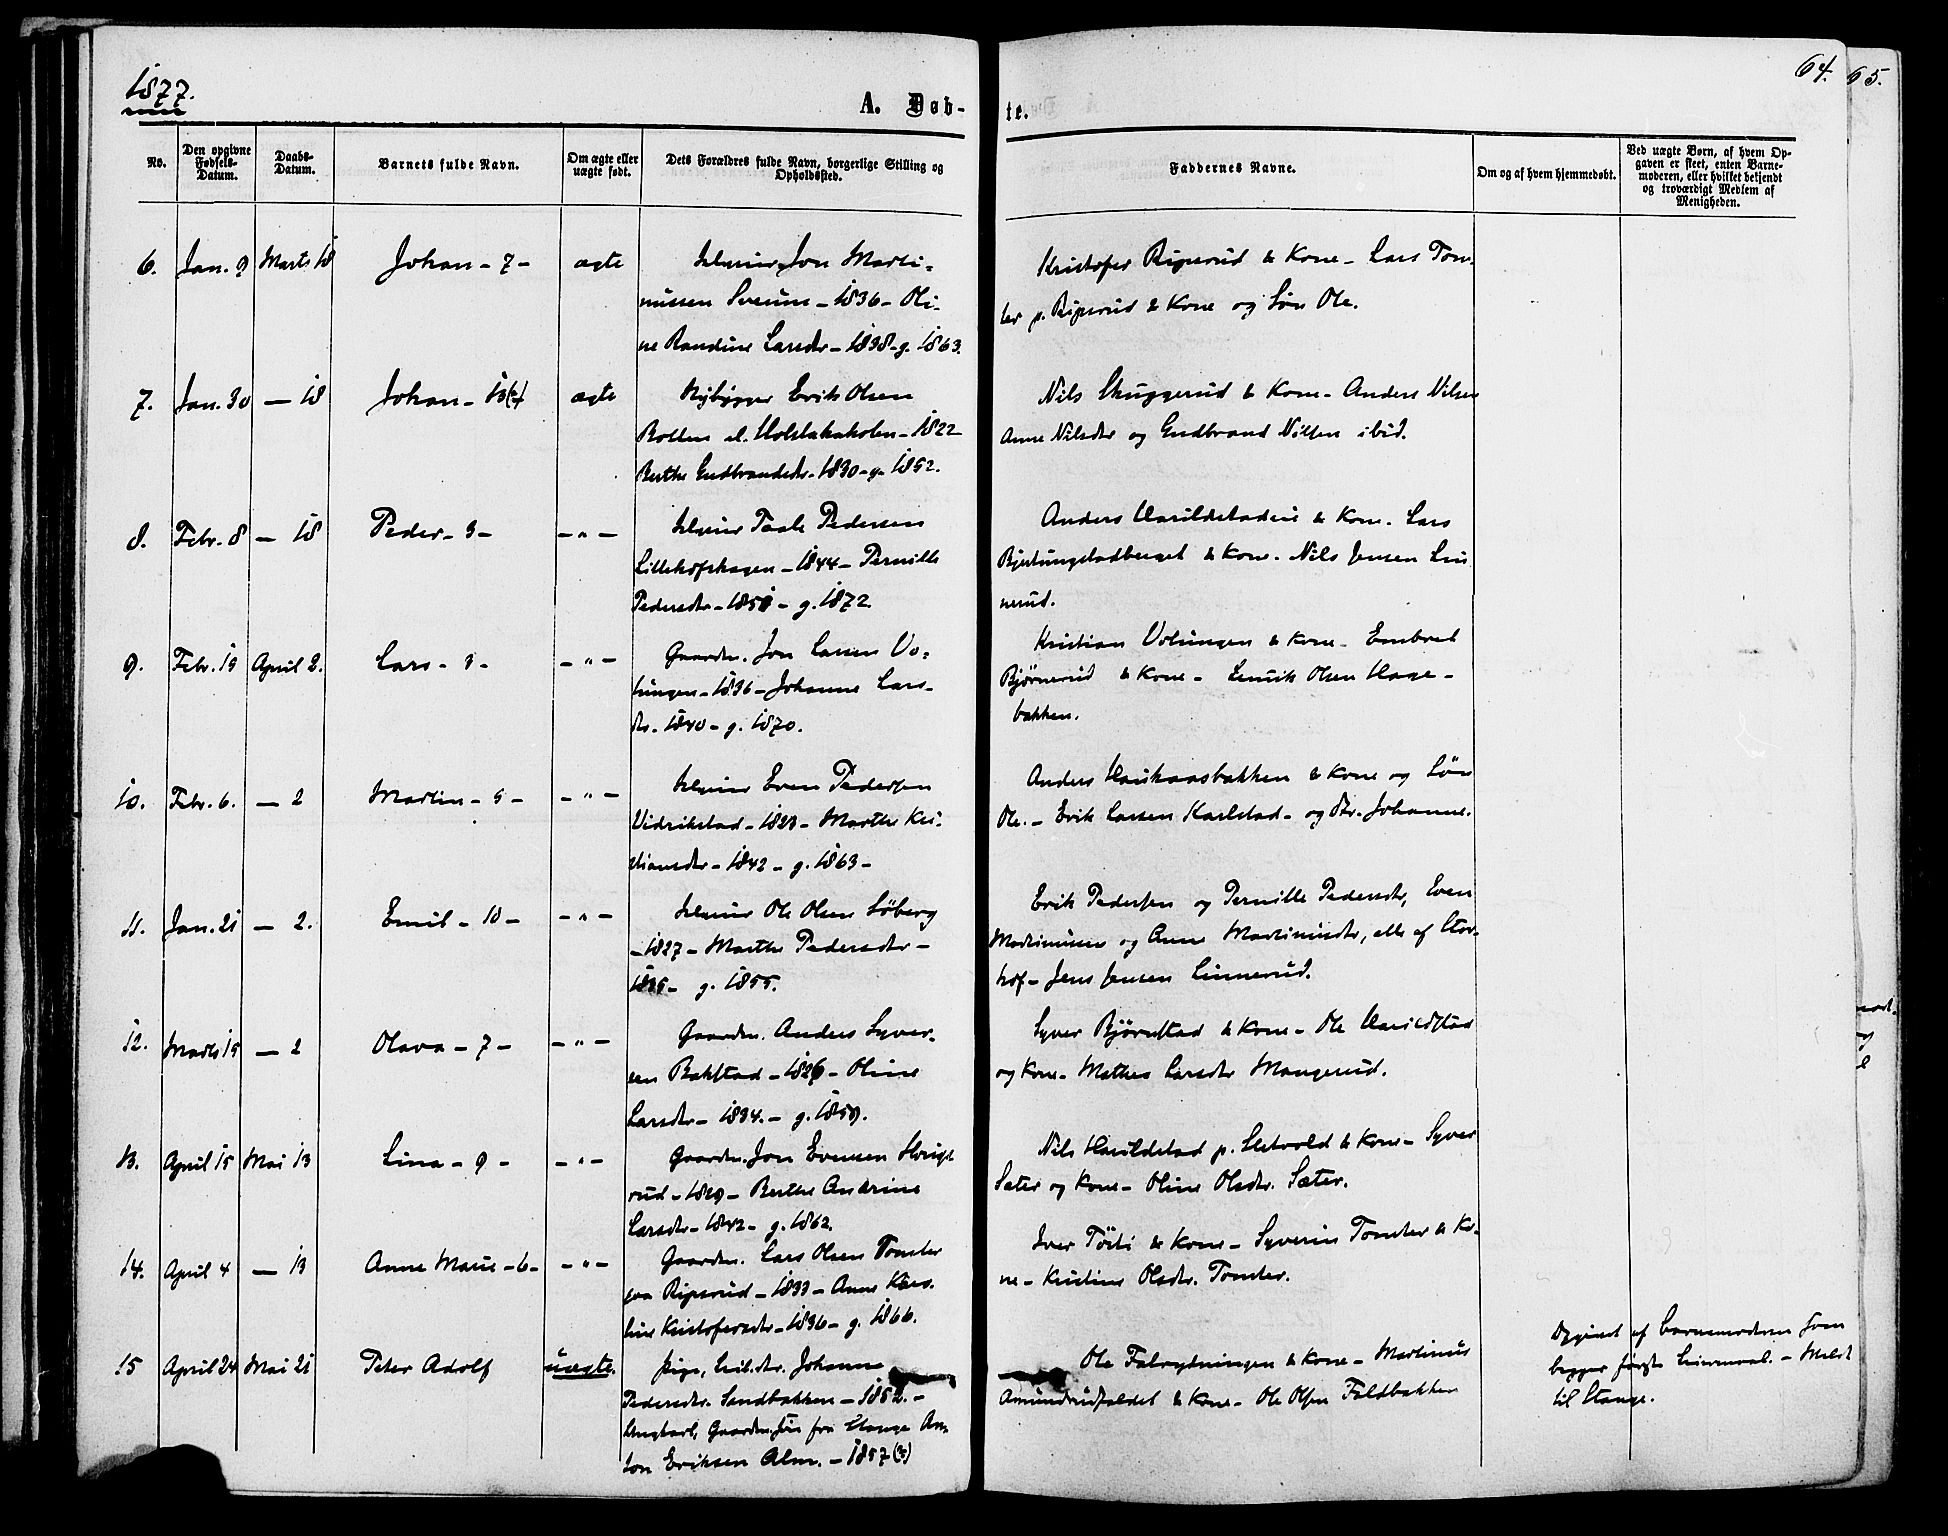 1877.
64.
65.
A. Døb-
te.
No.
Den opgivne Fødsels-Datum.
Daabs-Datum.
Barnets fulde Navn.
Om ægte eller uægte født.
Dets Forældres fulde Navn, borgerlige Stilling og Opholdssted.
Faddernes Navne.
Om og af hvem hjemmedøbt.
Ved uægte Børn, af hvem Op-
gaven er skeet, enten Barne-
moderen, eller hvilket bekjendt
og troværdigt Medlem af
Menigheden.
6. Jan. 9 Marts 18 Johan - 7 - ægte Jon Marti-
nussen - 1836 - Oli-
ne Randine Larsdtr - 1838 - g. 1863.
Kristofer Ripsrud & Kone - Lars Tom-
ter p. Ripsrud & Kone og Søn Ole.
7. Jan. 30 - 18 Johan - 13(?) ægte Erik Olsen
- 1822
Berthe Gudbrandsdtr - 1830 - g. 1852.
Nils Skuggerud & Kone - Anders Nilsen
Anne Nilsdtr og Gudbrand Nilsen ibid.
8. Febr. 8 - 18 Peder - 3 - - " - Taale Pedersen
Lillehofshagen - 1844 - Pernille
Pedersdtr - 1851 - g. 1872
Anders Harildstadeie & Kone. Lars
& Kone. Nils Jensen Lin
nerud.
9. Febr. 19 April 2. Lars - 3 - - " - Gaardm. Jon Larsen Vo-
lungen - 1836 - Johanne Lars-
dtr. 1840 - g. 1870.
Kristian Volungen & Kone - Embret
Bjørnerud & Kone - Olsen Hage-
bakken.
10. Febr. 6. - 2 Martin - 9 - - " - Even Pedersen
Vidrikstad - 1823 - Marthe Kri-
stiansdtr - 1842 - g. 1863 -
Anders Haukaasbakken & Kone og Søn
Ole. - Erik Larsen Karlstad - og Dtr. Johanne.
11. Jan. 21 - 2. Emil - 10 - - " - Ole Olsen Søberg
- 1827 - Marthe Pedersdtr -
g. 1855.
Erik Pedersen og Pernille Pedersdtr, Even
Martinussen og Anne Martinusdtr, alle af Stor-
hof - Jens Jensen Linnerud.
12. Marts 15 - 2 Olava - 7 - - " - Gaardm. Anders Syver-
sen Bakstad - 1826 - Oline
Larsdtr - 1834. - g. 1859.
Syver Bjørnstad & Kone - Ole Harildstad
og Kone - Mathea Larsdtr Mangerud.
13. April 15 Mai 13 Lina - 9 - - " - Gaardm. Jon Evensen
rud - 1829 - Berthe Andrine
Larsdtr - 1842 - g. 1862.
Nils Harildstad p. Sletvold & Kone - Syver
Sæter og Kone - Oline Olsdtr. Sæter.
14. April 4 - 13 Anne Marie - 6 - - " - Gaardm. Lars Olsen Tomter
paa Ripsrud - 1833 - Anne Karo-
line Kristofersdtr - 1836 - g. 1866.
Iver Tøiti & Kone - Syverin Tomter & Ko-
ne - Kristine Olsdtr. Tomter.
15 April 24 Mai 21 Peter Adolf uægte. Pige, Johanne
Pedersdtr. Sandbakken - 1852. -
Ungkarl, Gaardm. Søn fra Stange An-
ton Eriksen Alm. - 1857(?)
Ole & Kone - Martinus
& Kone - Ole Olsen Faldbakken
Opgivet af Barnemoderen som
begges første Leiermaal. - Meldt
til Stange.